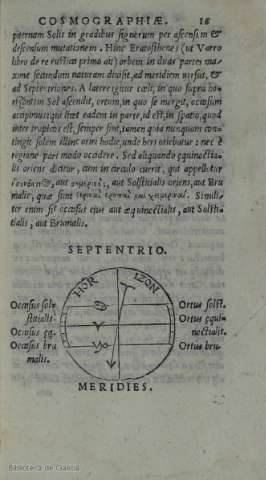 COSMOGRAPHIÆ. 16
piternam Solis in gradibus signorum per ascensum &
descensum mutationem. Hinc Eratosthenes (ut Varro
libro de re rustica primo ait) orbem in duas partes ma-
xime secundum naturam divisit, ad meridiem versus, &
ad Septentriones. A latere igitur cœli, in quo supra ho-
rizontem Sol ascendit, ortum, in quo se mergit, occasum
accipimus: qui licet eadem in parte, id est, in spatio, quod
inter tropicos est, semper sint, tamen quia nunquam con-
tingit solem illinc oriri hodie, unde heri oriebatur: nec è
regione pari modo occidere. Sed aliquando æquinoctia-
lis oriens dicitur, cum in circulo currit, qui appelletur
aut aut Solstitialis oriens, aut Bru
malis, quæ sunt Simili-
ter enim sit occasus eius aut æquinoctialis, aut Solsti-
tialis, aut Brumalis.
SEPTENTRIO.
HOR IZON
Occasus sols
stitialis.
Occasus eq.
Occasus bru
malis.
Ortus solst.
Ortus equi-
noctialis.
Ortus bru.
MERIDIES.
Biblioteca de Galicia